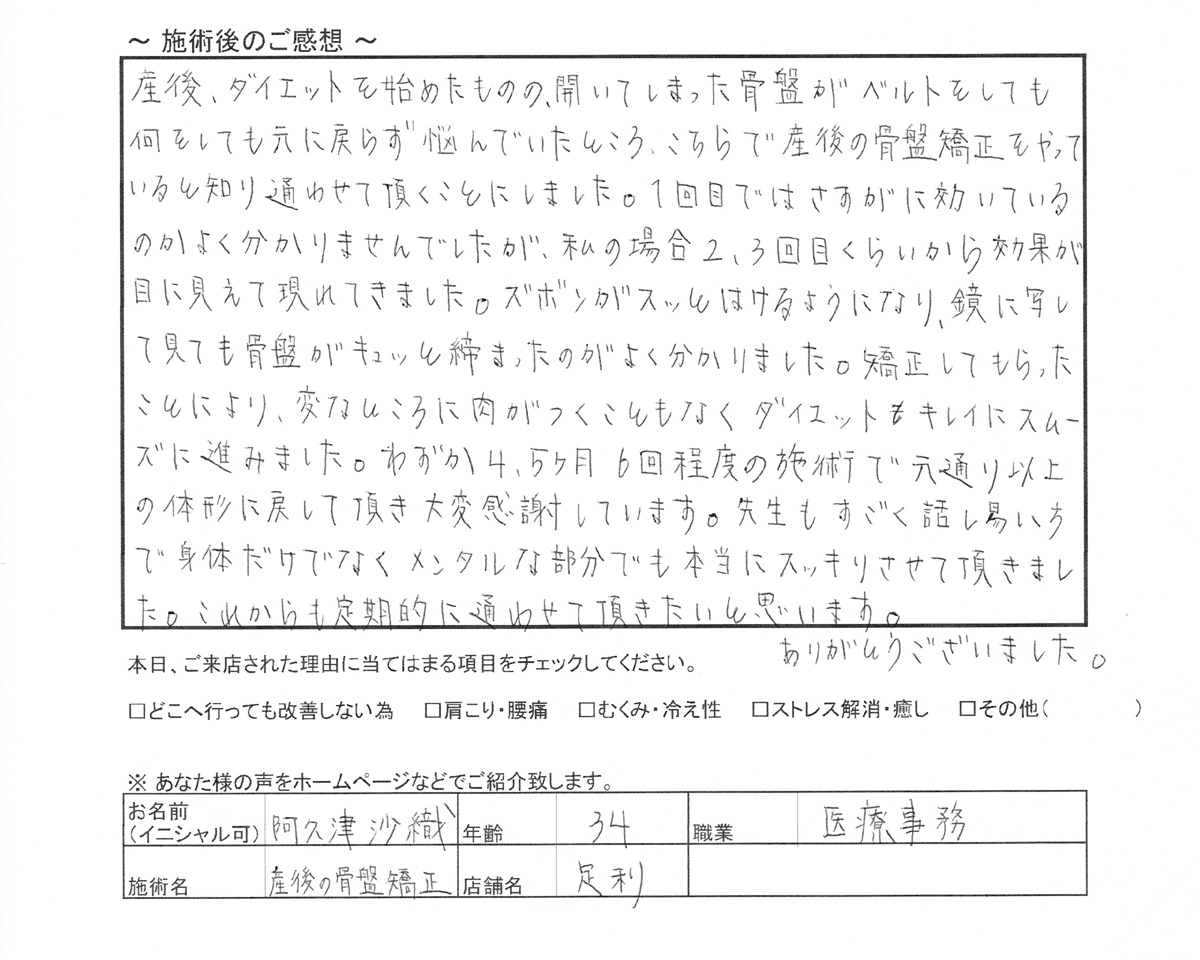 ～ 施術後のご感想 ～
産後、ダイエットを始めたものの、開いてしまった骨盤がベルトをしても
何をしても元に戻らず悩んでいたところ、こちらで産後の骨盤矯正をやって
いると知り通わせて頂くことにしました。1回目ではさすがに効いている
のかよく分かりませんでしたが、私の場合2、3回目くらいから効果が
目に見えて現れてきました。ズボンがスッとはけるようになり、鏡に写し
て見ても骨盤がキュッと締まったのがよく分かりました。矯正してもらった
ことにより、変なところに肉がつくこともなくダイエットもキレイにスムー
ズに進みました。わずか4、5ヶ月 6回程度の施術で元通り以上
の体形に戻して頂き大変感謝しています。先生もすごく話し易い方
で身体だけでなくメンタルな部分でも本当にスッキリさせて頂きまし
た。これからも定期的に通わせて頂きたいと思います。
ありがとうございました。
本日、ご来店された理由に当てはまる項目をチェックしてください。
□どこへ行っても改善しない為 □肩こり・腰痛 □むくみ・冷え性 □ストレス解消・癒し □その他( )
※ あなた様の声をホームページなどでご紹介致します。
お名前（イニシャル可） 阿久津 沙織 年齢 34 職業 医療事務
施術名 産後の骨盤矯正 店舗名 足利